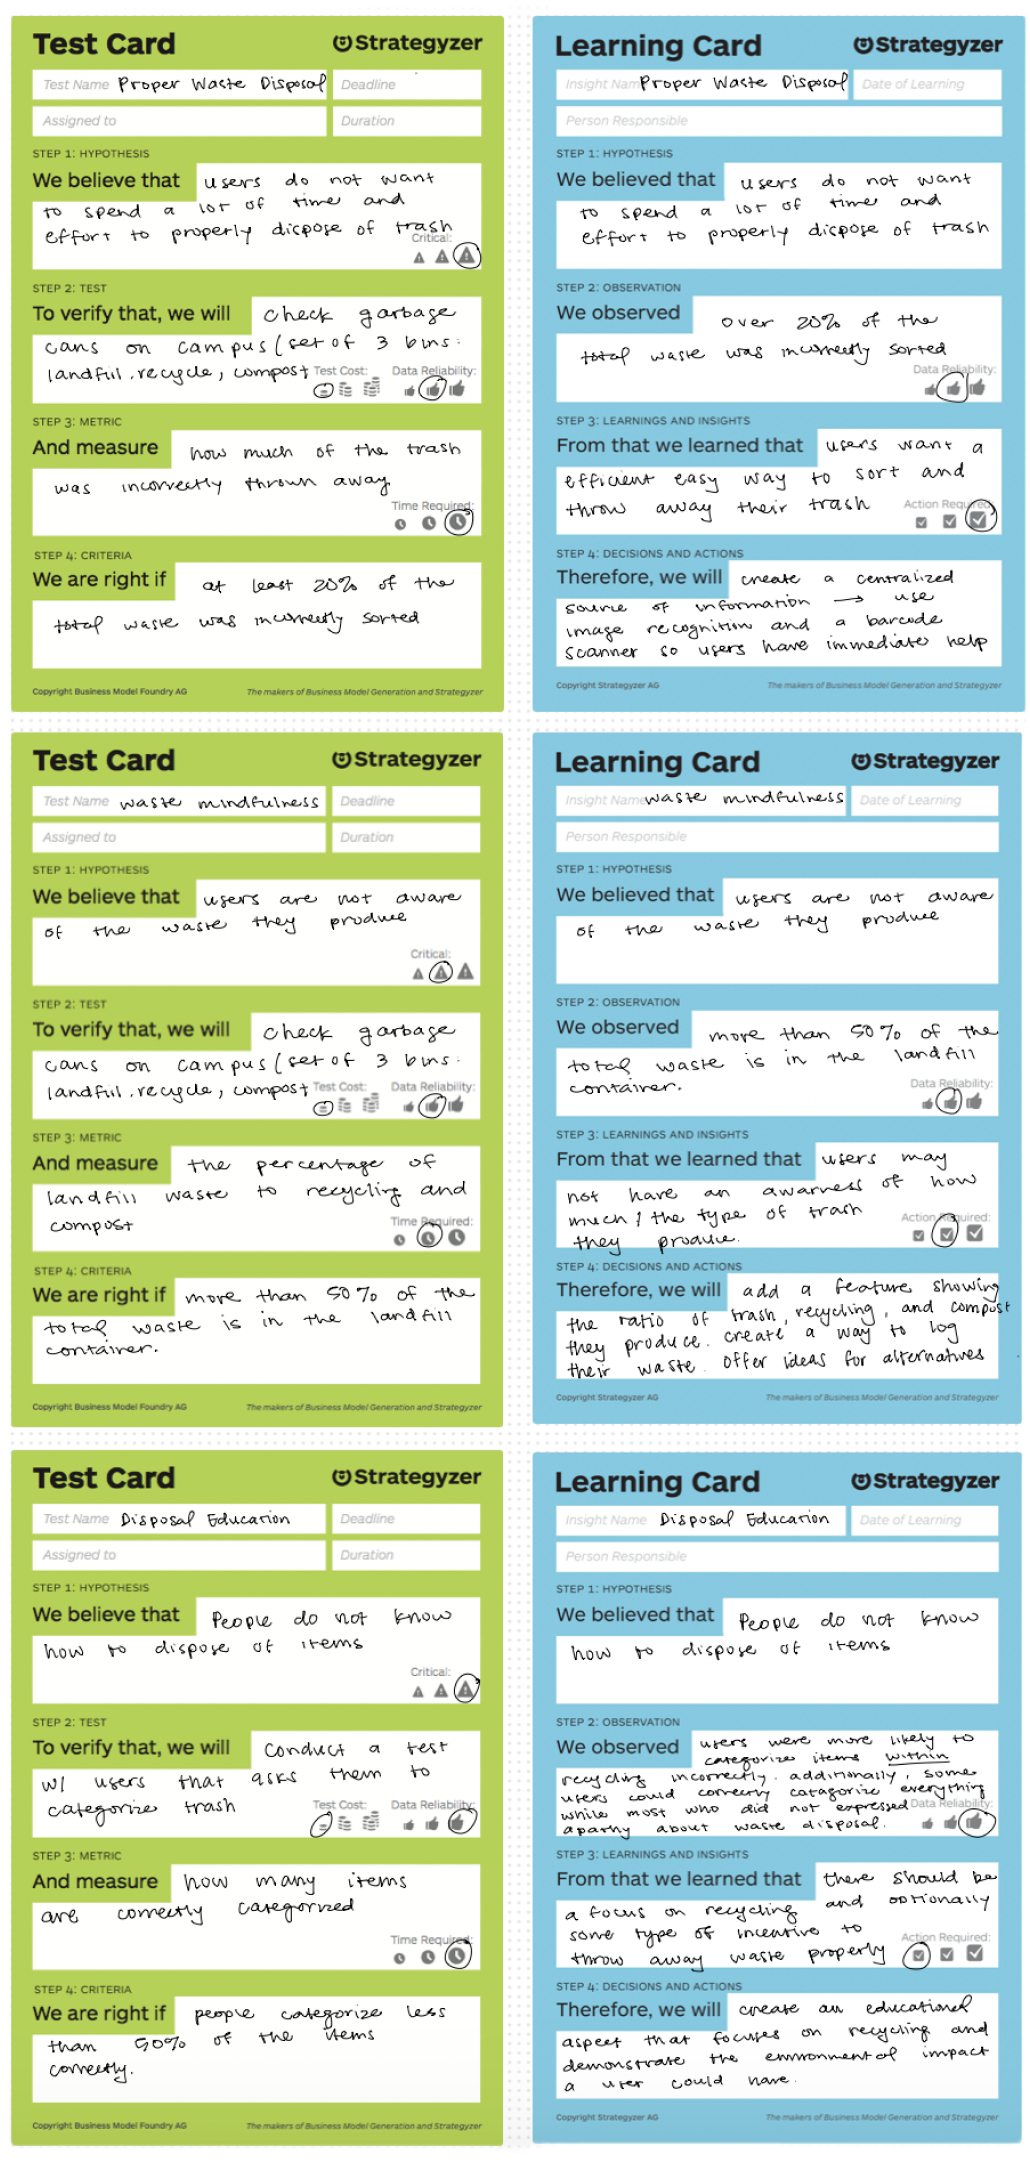 Test Card
Strategyzer
Test Name Proper Waste Disposal
Deadline
Assigned to
Duration
STEP 1: HYPOTHESIS
We believe that users do not want
to spend a lot of time and
effort to properly dispose of trash
Critical:
STEP 2: TEST
To verify that, we will check garbage
cans on campus (set of 3 bins:
landfill, recycle, compost
Test Cost:
Data Reliability:
STEP 3: METRIC
And measure how much of the trash
was incorrectly thrown away
Time Required:
STEP 4: CRITERIA
We are right if at least 20% of the
total waste was incorrectly sorted
Copyright Business Model Foundry AG
The makers of Business Model Generation and Strategyzer
Learning Card
Strategyzer
Insight Name Proper Waste Disposal
Date of Learning
Person Responsible
STEP 1: HYPOTHESIS
We believed that users do not want
to spend a lot of time and
effort to properly dispose of trash
STEP 2: OBSERVATION
We observed over 20% of the
total waste was incorrectly sorted
Data Reliability:
STEP 3: LEARNINGS AND INSIGHTS
From that we learned that users want a
efficient easy way to sort and
throw away their trash
Action Required:
STEP 4: DECISIONS AND ACTIONS
Therefore, we will create a centralized
source of information → use
image recognition and a barcode
scanner so users have immediate help
Copyright Strategyzer AG
The makers of Business Model Generation and Strategyzer
Test Card
Strategyzer
Test Name waste mindfulness
Deadline
Assigned to
Duration
STEP 1: HYPOTHESIS
We believe that users are not aware
of the waste they produce
Critical:
STEP 2: TEST
To verify that, we will check garbage
cans on campus (set of 3 bins:
landfill, recycle, compost
Test Cost:
Data Reliability:
STEP 3: METRIC
And measure the percentage of
landfill waste to recycling and
compost
Time Required:
STEP 4: CRITERIA
We are right if more than 50% of the
total waste is in the landfill
container.
Copyright Business Model Foundry AG
The makers of Business Model Generation and Strategyzer
Learning Card
Strategyzer
Insight Name waste mindfulness
Date of Learning
Person Responsible
STEP 1: HYPOTHESIS
We believed that users are not aware
of the waste they produce
STEP 2: OBSERVATION
We observed more than 50% of the
total waste is in the landfill
container.
Data Reliability:
STEP 3: LEARNINGS AND INSIGHTS
From that we learned that users may
not have an awarness of how
much / the type of trash
they produce.
Action Required:
STEP 4: DECISIONS AND ACTIONS
Therefore, we will add a feature showing
the ratio of trash, recycling, and compost
they produce. create a way to log
their waste. offer ideas for alternatives
Copyright Strategyzer AG
The makers of Business Model Generation and Strategyzer
Test Card
Strategyzer
Test Name Disposal Education
Deadline
Assigned to
Duration
STEP 1: HYPOTHESIS
We believe that People do not know
how to dispose of items
Critical:
STEP 2: TEST
To verify that, we will conduct a test
w/ users that asks them to
categorize trash
Test Cost:
Data Reliability:
STEP 3: METRIC
And measure how many items
are correctly categorized
Time Required:
STEP 4: CRITERIA
We are right if people categorize less
than 50% of the items
correctly.
Copyright Business Model Foundry AG
The makers of Business Model Generation and Strategyzer
Learning Card
Strategyzer
Insight Name Disposal Education
Date of Learning
Person Responsible
STEP 1: HYPOTHESIS
We believed that People do not know
how to dispose of items
STEP 2: OBSERVATION
We observed users were more likely to
categorize items within
recycling incorrectly. additionally, some
users could correctly catagorize everything
while most who did not expressed
apathy about waste disposal.
Data Reliability:
STEP 3: LEARNINGS AND INSIGHTS
From that we learned that there should be
a focus on recycling and optionally
some type of incentive to
throw away waste properly
Action Required:
STEP 4: DECISIONS AND ACTIONS
Therefore, we will create an educational
aspect that focuses on recycling and
demonstrate the environmental impact
a user could have.
Copyright Strategyzer AG
The makers of Business Model Generation and Strategyzer